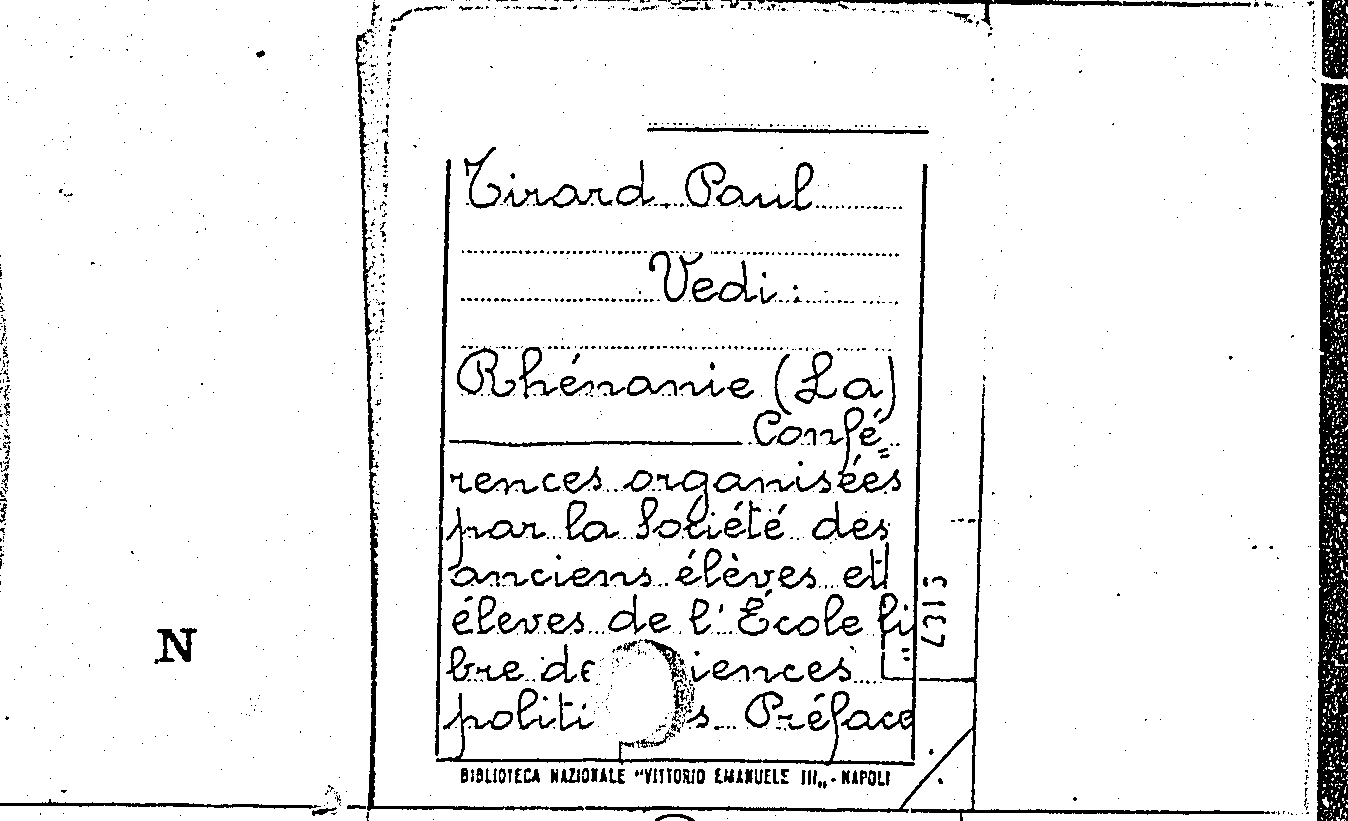 Tirard Paul
Vedi:
Rhénanie (La)
Confé=
rences organisées
par la Société des
anciens élèves et
éleves de l'École li=
bre de
politi Préface
BIBLIOTECA NAZIONALE "VITTORIO EMANUELE III„ - NAPOLI
N